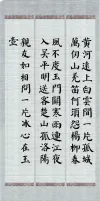 黃河遠上白雲間一片孤城
萬仞山羌笛何須怨楊柳春
風不度玉門關寒雨連江夜
入吳平明送客楚山孤洛陽
親友如相問一片冰心在玉
壺